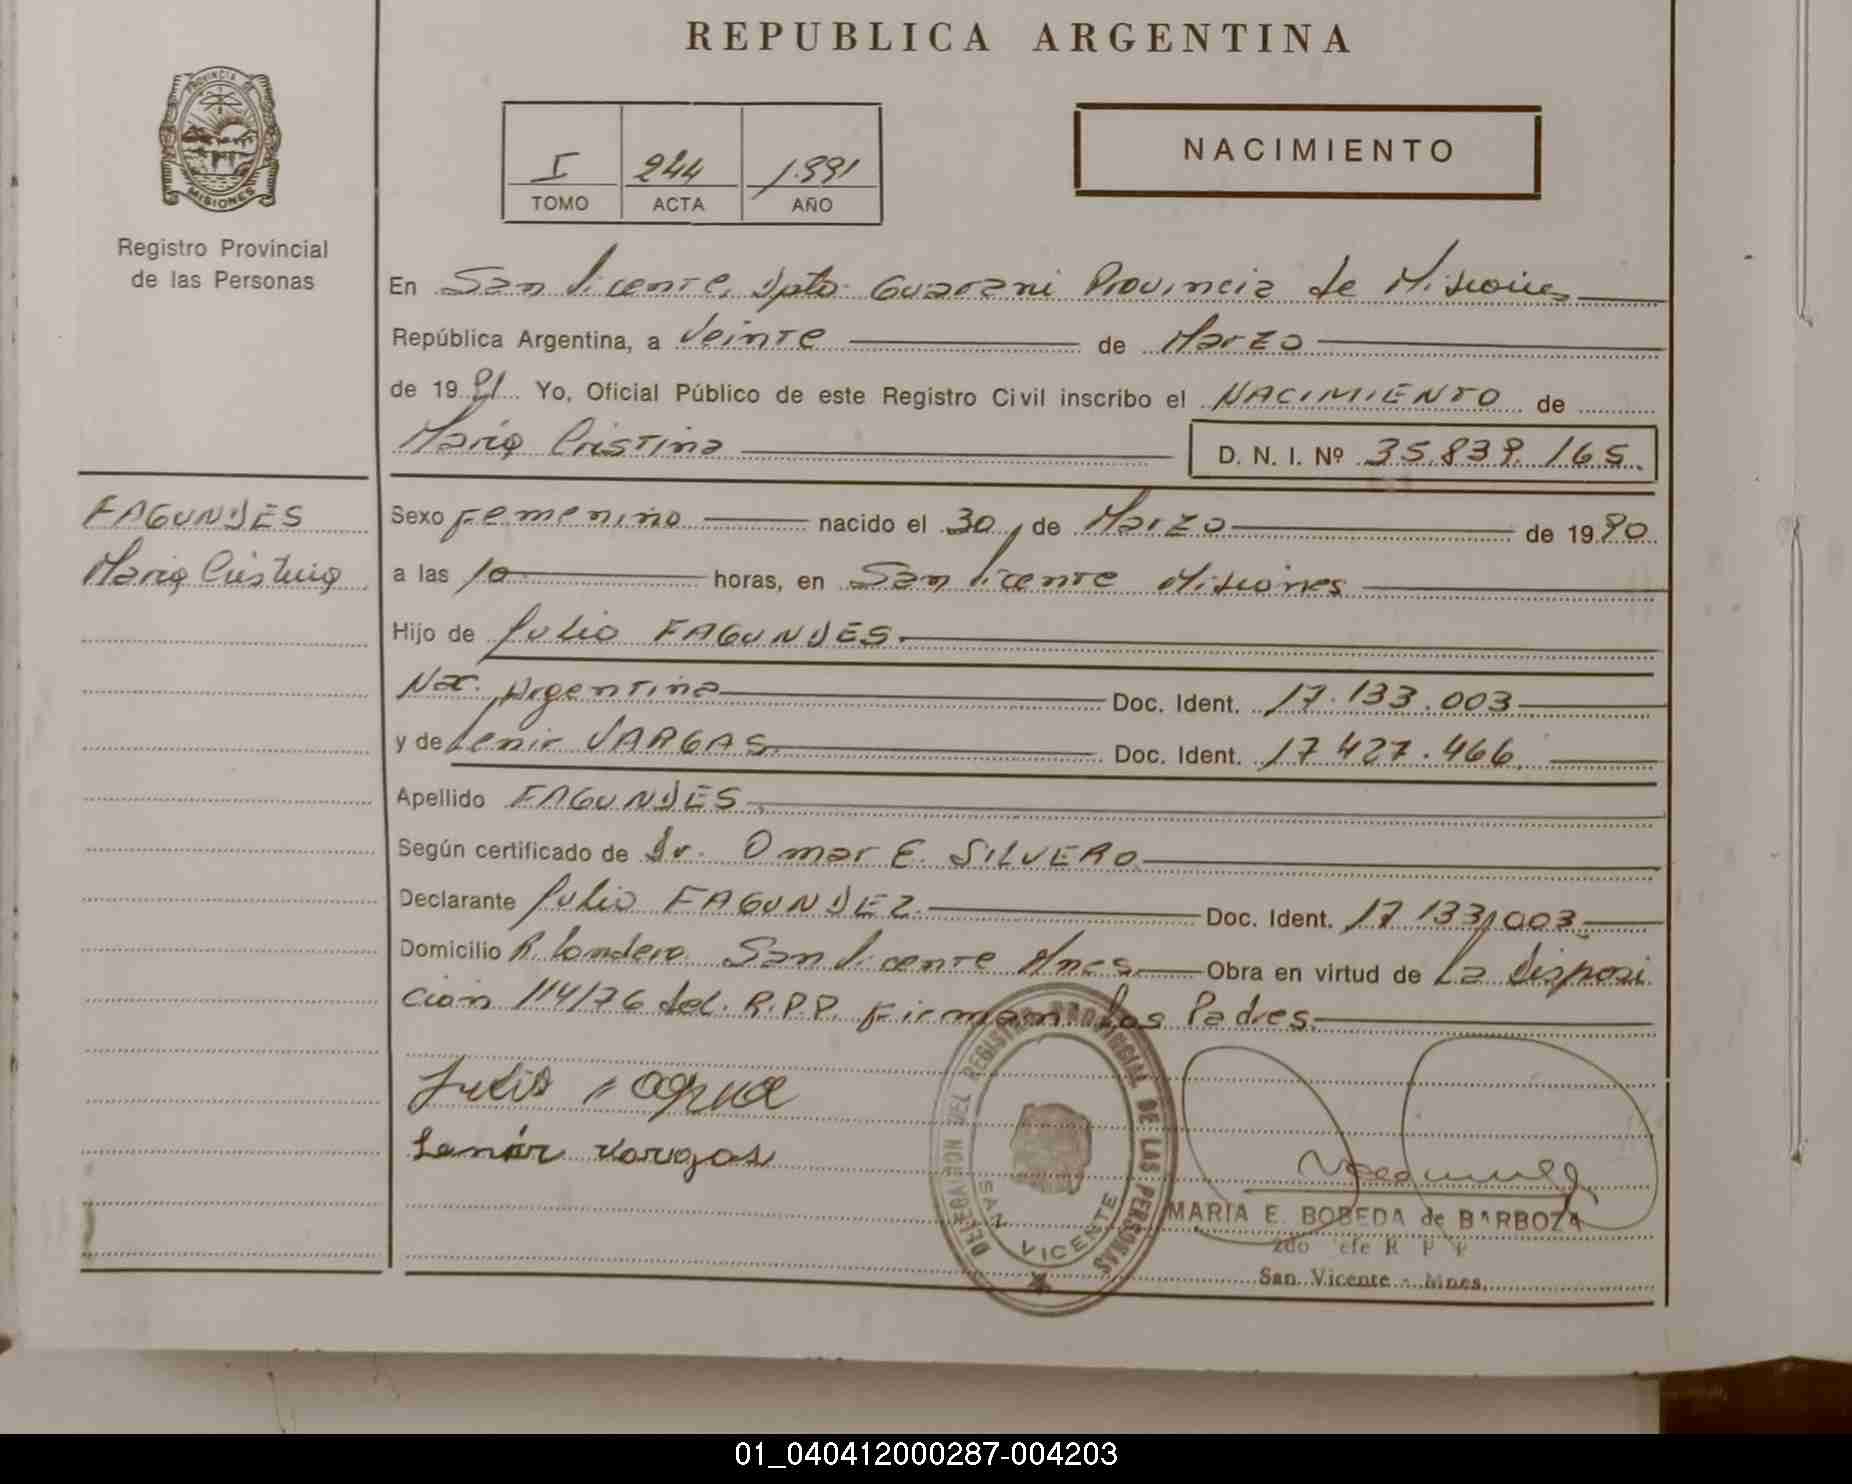 REPUBLICA ARGENTINA
PROVINCIA DE
MISIONES
Registro Provincial
de las Personas
I 244 1.991
TOMO ACTA AÑO
NACIMIENTO
En San Vicente, Dpto. Guarani Provincia de Misiones
República Argentina, a Veinte de Marzo
de 1991. Yo, Oficial Público de este Registro Civil inscribo el NACIMIENTO de
Maria Cristina D. N. I. Nº 35.839.165.
FAGUNDES
Maria Cristina
Sexo Femenino nacido el 30 de Marzo de 1990
a las 10 horas, en San Vicente Misiones
Hijo de Julio FAGUNDES.
Nac. Argentina Doc. Ident. 17.133.003
y de Lenir VARGAS Doc. Ident. 17427.466
Apellido FAGUNDES
Según certificado de Dr. Omar E. SILVERO
Declarante Julio FAGUNDEZ. Doc. Ident. 17 133.003
Domicilio San Vicente Mnes. Obra en virtud de La Disposi
cion 114/76 del. R.P.P. Firman Los Padres.
Julio
Lenir Vargas
DELEGACION DEL REGISTRO PROVINCIAL DE LAS PERSONAS
SAN VICENTE
MARIA E. BOBEDA de BARBOZA
2do Jefe R P P
San Vicente - Mnes.
01_040412000287-004203